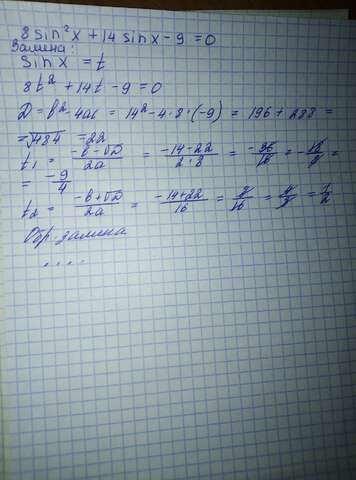 8 sin²x + 14 sinx - 9 = 0
Замена:
sinx = t
8t² + 14t - 9 = 0
D = b² - 4ac = 14² - 4·8·(-9) = 196 + 288 =
= √484 = 22
t₁ = -b-√D/2a = -14-22/2·8 = -36/16 = -18/8 =
= -9/4
t₂ = -b+√D/2a = -14+22/16 = 8/16 = 4/8 = 1/2
Обр. замена
....